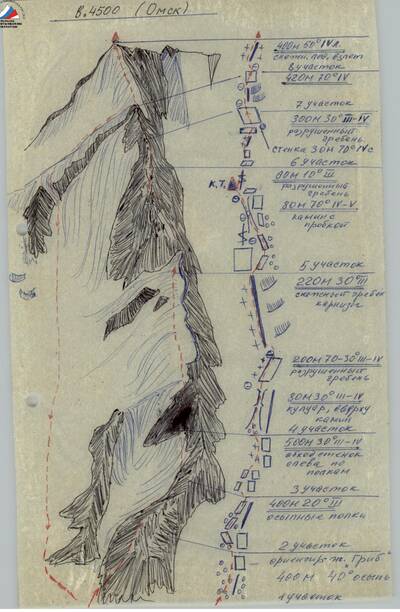 в.4500 (Омск)
400м 50° IV л.
8 участок
420м 70° IV
7 участок
300м 30° III-IV
разрушенный
гребень
стенка 30м 70° IV с
6 участок
80м 10° III
разрушенный
гребень
К.Т.
80м 70° IV-V
камин с
пробкой
5 участок
220м 30° III
снежный гребень
карнизы
200м 70-30° III-IV
разрушенный
гребень
80м 30° III-IV
кулуар, вверху
камин
4 участок
500м 30° III-IV
обход стенок
слева по
полкам
3 участок
400м 20° III
осыпные полки
2 участок
ориентир т. "Гриб"
400м 40° осыпь
1 участок